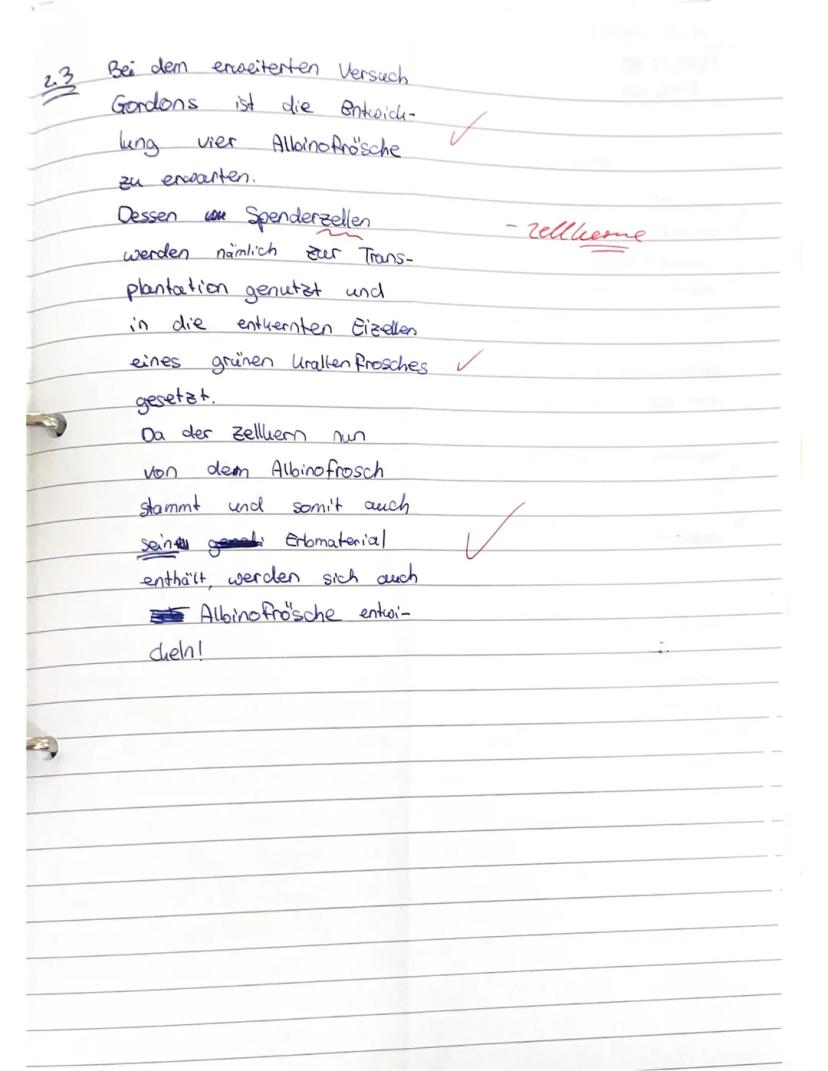 2.3 Bei dem erweiterten Versuch
Gordons ist die Entwick-
lung vier Albinofrösche
zu erwarten.
Dessen Spenderzellen
- zellkerne
werden nämlich zur Trans-
plantation genutzt und
in die entkernten Eizellen
eines grünen Urallenfrosches
gesetzt.
Da der Zellkern nun
von dem Albinofrosch
stammt und somit auch
sein Erbmaterial
enthält, werden sich auch
Albinofrösche entwi-
ckeln!